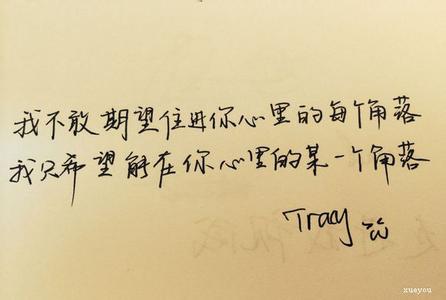 我不敢期望住进你心里的每个角落
我只希望能在你心里的某一个角落
Tracy
xueyou